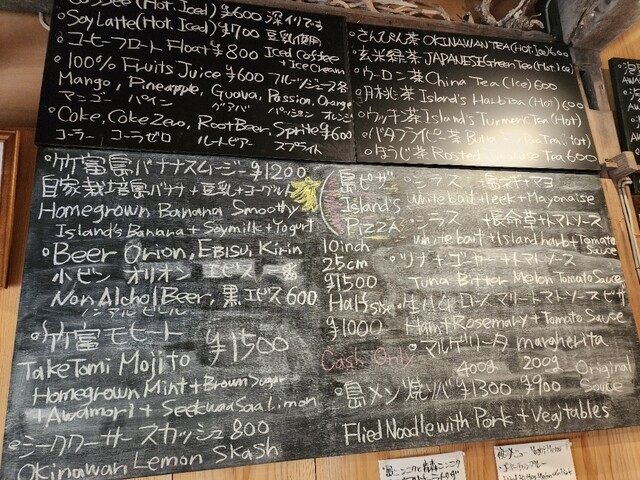 Coffee (Hot, Iced) ¥600 深イリです
Soy Latte (Hot, Iced) ¥700 豆乳使用
コーヒーフロート Float ¥800 Iced Coffee + Ice Cream
100% Fruits Juice ¥600 フルーツジュース各
Mango, Pineapple, Guava, Passion, Orange
マンゴー パイン グアバ パッション オレンジ
Coke, Coke Zero, Root Beer, Sprite ¥600
コーラー コーラゼロ ルートビアー スプライト
さんぴん茶 OKINAWAN TEA (Hot, Ice) 600
玄米緑茶 JAPANESE Green Tea (Hot, Ice)
ウーロン茶 China Tea (Ice) 600
月桃茶 Island's Harb (Hot) 600
ウッチン茶 Island's Turmeric Tea (Hot)
バタフライピー茶 Tea (Hot)
ほうじ茶 Roasted Tea 600
竹富島バナナスムージー ¥1200
自家栽培島バナナ + 豆乳 + ヨーグルト
Homegrown Banana Smoothy
Island's Banana + Soymilk + Yogurt
Beer Orion, EBISU, Kirin
小ビン オリオン エビス 一番
Non Alchol Beer, 黒エビス 600
ノンアルビール
竹富モヒート ¥1500
TakeTomi Mojito
Homegrown Mint + Brown Sugar
+ Awamori + Seekuwaasaa Limon
シークワーサースカッシュ 800
Okinawan Lemon Skash
島ピザ
Island's
PIZZA
10inch
25cm
¥1500
Half size
¥1000
Cash Only
シラス + 島ネギ + マヨ
White bait + leek + Mayonaise
シラス + 長命草 + トマトソース
White bait + Island harb + Tomato Sauce
ツナ + ゴーヤー + トマトソース
Tuna Bitter Melon Tomato Sauce
生ハム ローズマリー トマトソース ピザ
Ham + Rosemary + Tomato Sauce
マルゲリータ margherita
400g 200g Original
島メン焼ソバ ¥1300 ¥900 Sauce
Flied Noodle with Pork + Vegitables